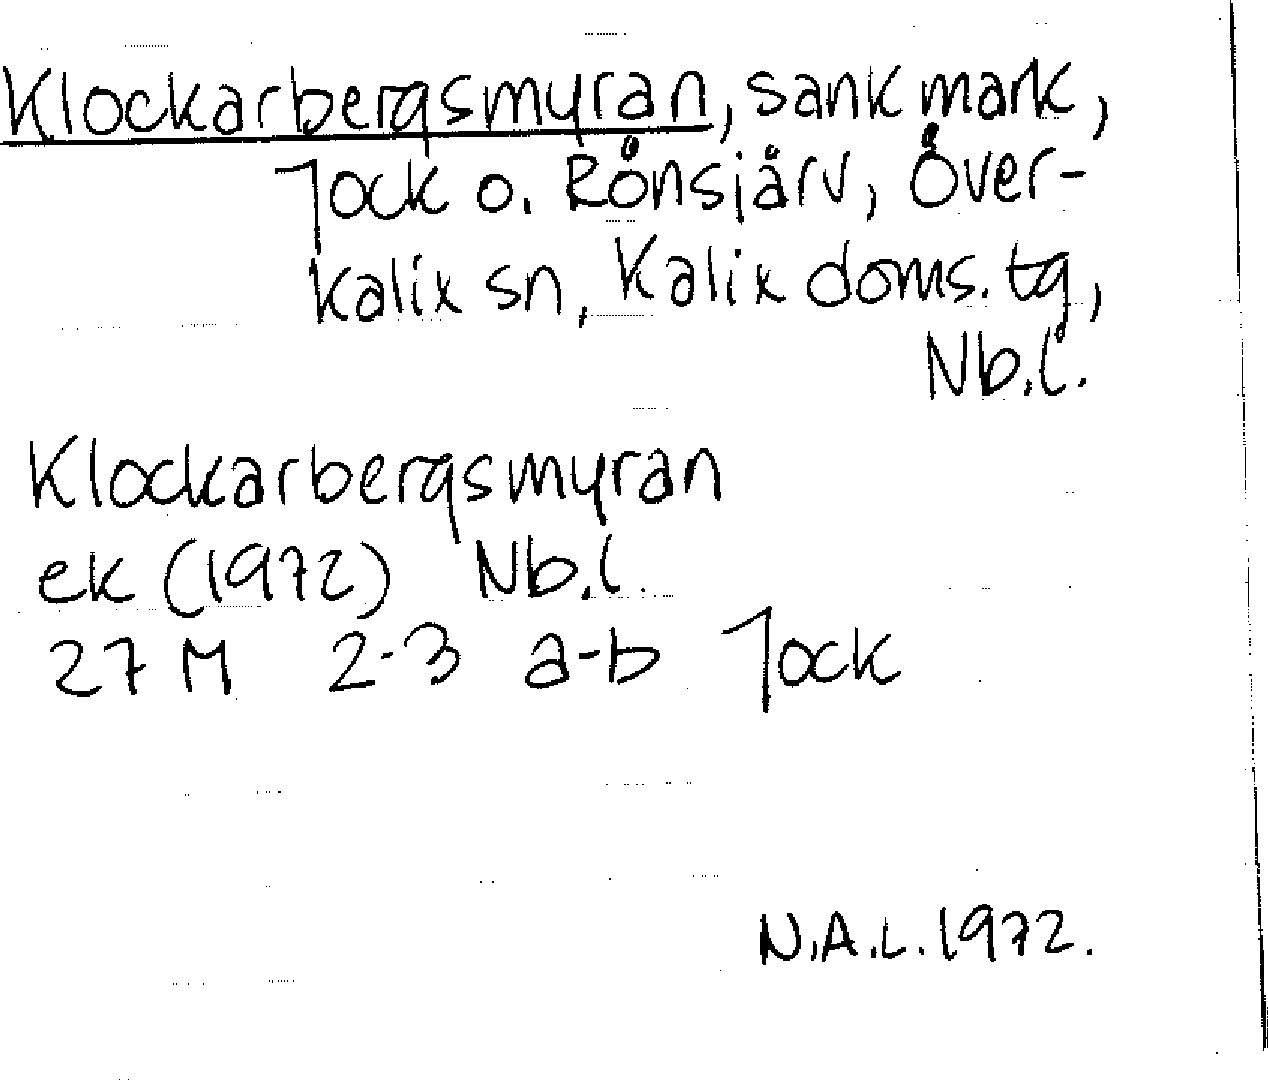 Klockarbergsmyran, sank mark,
Jock o. Rönsjärv, Över-
kalix sn, Kalix doms. tg,
Nb.l.
Klockarbergsmyran
ek (1972) Nb.l.
27 M 2-3 a-b Jock
N.A.L. 1972.